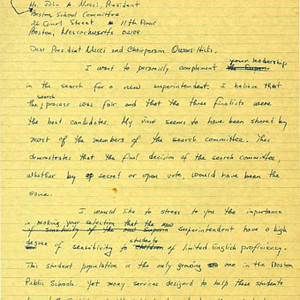 Mr. John A. Nucci, President
Boston School Committee
26 Court Street - 11th Floor
Boston, Massachusetts 02108
Dear President Nucci and Chairperson Owens-Hicks,
I want to personally complement your leadership
in the search for a new superintendent. I believe that
search
the process was fair and that the three finalists were
the best candidates. My view seems to have been shared by
most of the members of the search committee. This
demonstrates that the final decision of the search committee,
whether by secret or open vote, would have been the
same.
I would like to stress to you the importance
in making your selection that the new
superintendent have a high
students
degree of sensitivity to of limited English proficiency.
This student population is the only growing one in the Boston
Public Schools, yet many services designed to help these students